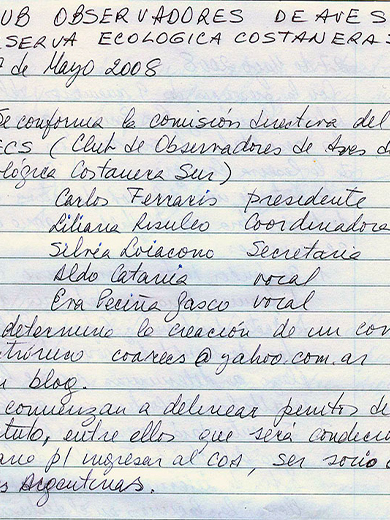 UB OBSERVADORES DE AVES
SERVA ECOLOGICA COSTANERA S
7 de Mayo 2008
Se conforma la comisión directiva del
ECS (Club de Observadores de Aves d
ológica Costanera Sur)
Carlos Ferraris presidente
Liliana Risuleo Coordinadora
Silvia Loiacono Secretaria
Aldo Catania vocal
Eva Peciña Gasco vocal
determino la creación de un cor
ctrónico coarecs@yahoo.com.ar
n blog.
comienzan a delinear puntos de
tuto, entre ellos que será condici
ane p/ ingresar al COA, ser socio d
s Argentinas.